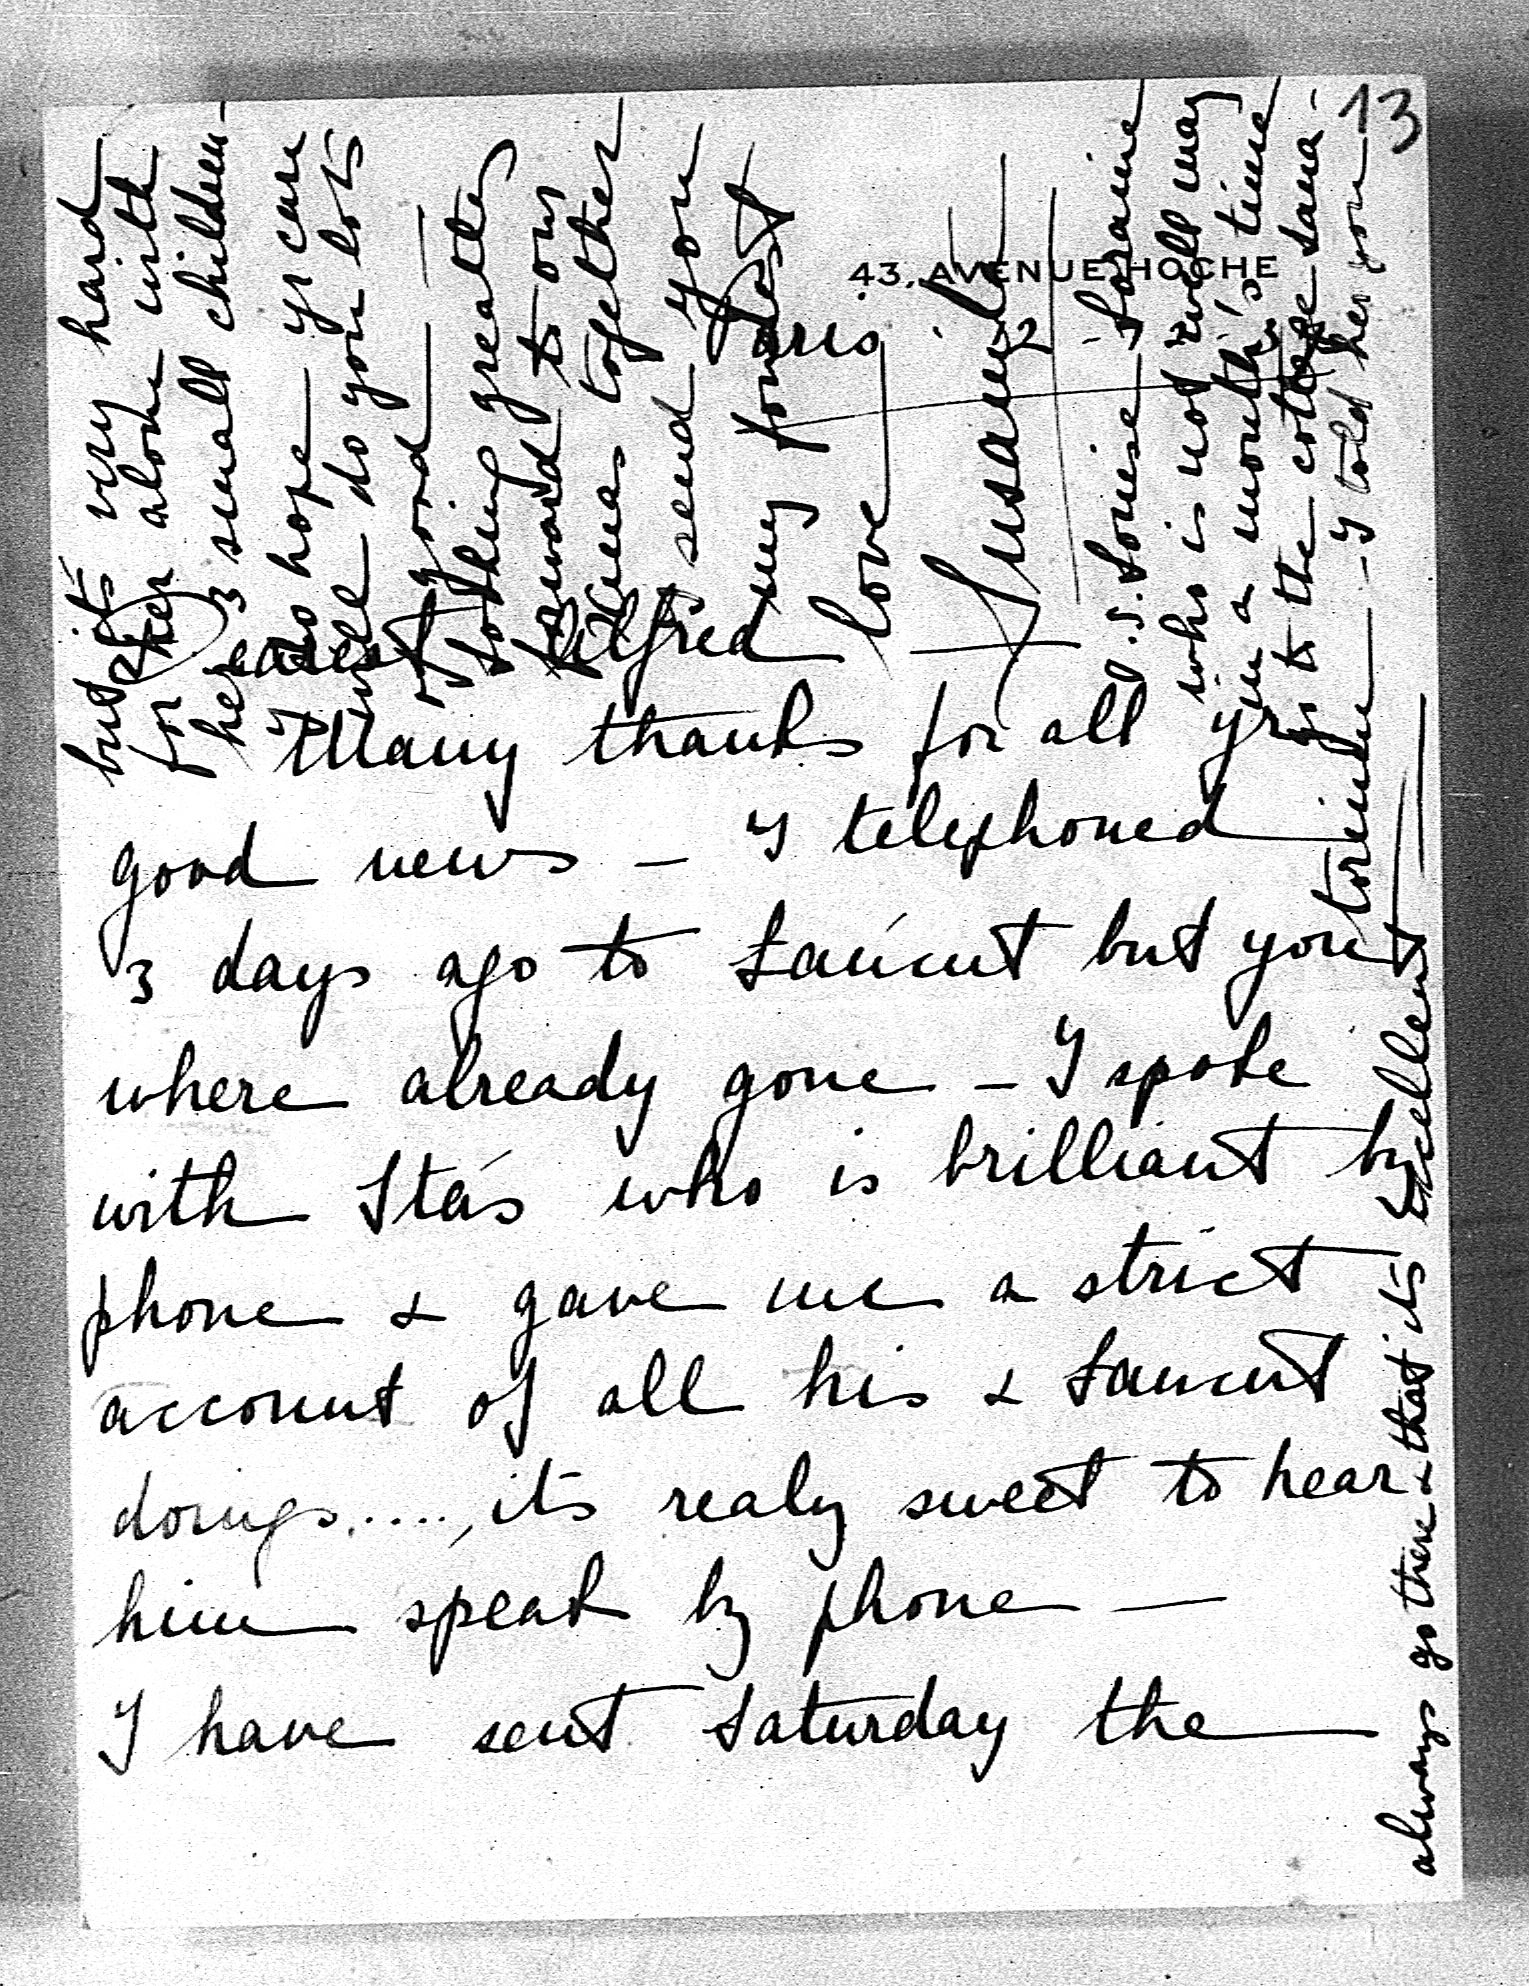 13
43, AVENUE HOCHE
Paris 12 -
Dearest Alfred
Many thanks for all yr
good news — I telephoned
3 days ago to Lancut but you
where already gone — I spoke
with Stás who is brilliant by
phone & gave me a strict
account of all his & Lancut
doings....., its realy sweet to hear
him speak by phone —
I have sent Saturday the
but its very hard
for her alone with
her 3 small children —
I do hope yr cure
will do you lots
of good —
looking greatly
forward to our
Xmas together
I send you
my fondest
love
Susanna
P.S. Louise Loraine
who is not well may
in a month's time
go to the cottage Sana-
torium — I told her you
always go there & that its excellent